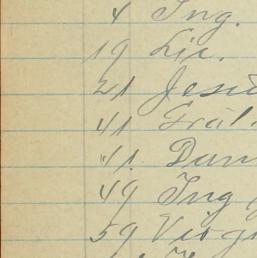 4 Ing.
19 Lic.
21 Jesú
41 Grál.
41. Dun
49 Ing
59 Virgi